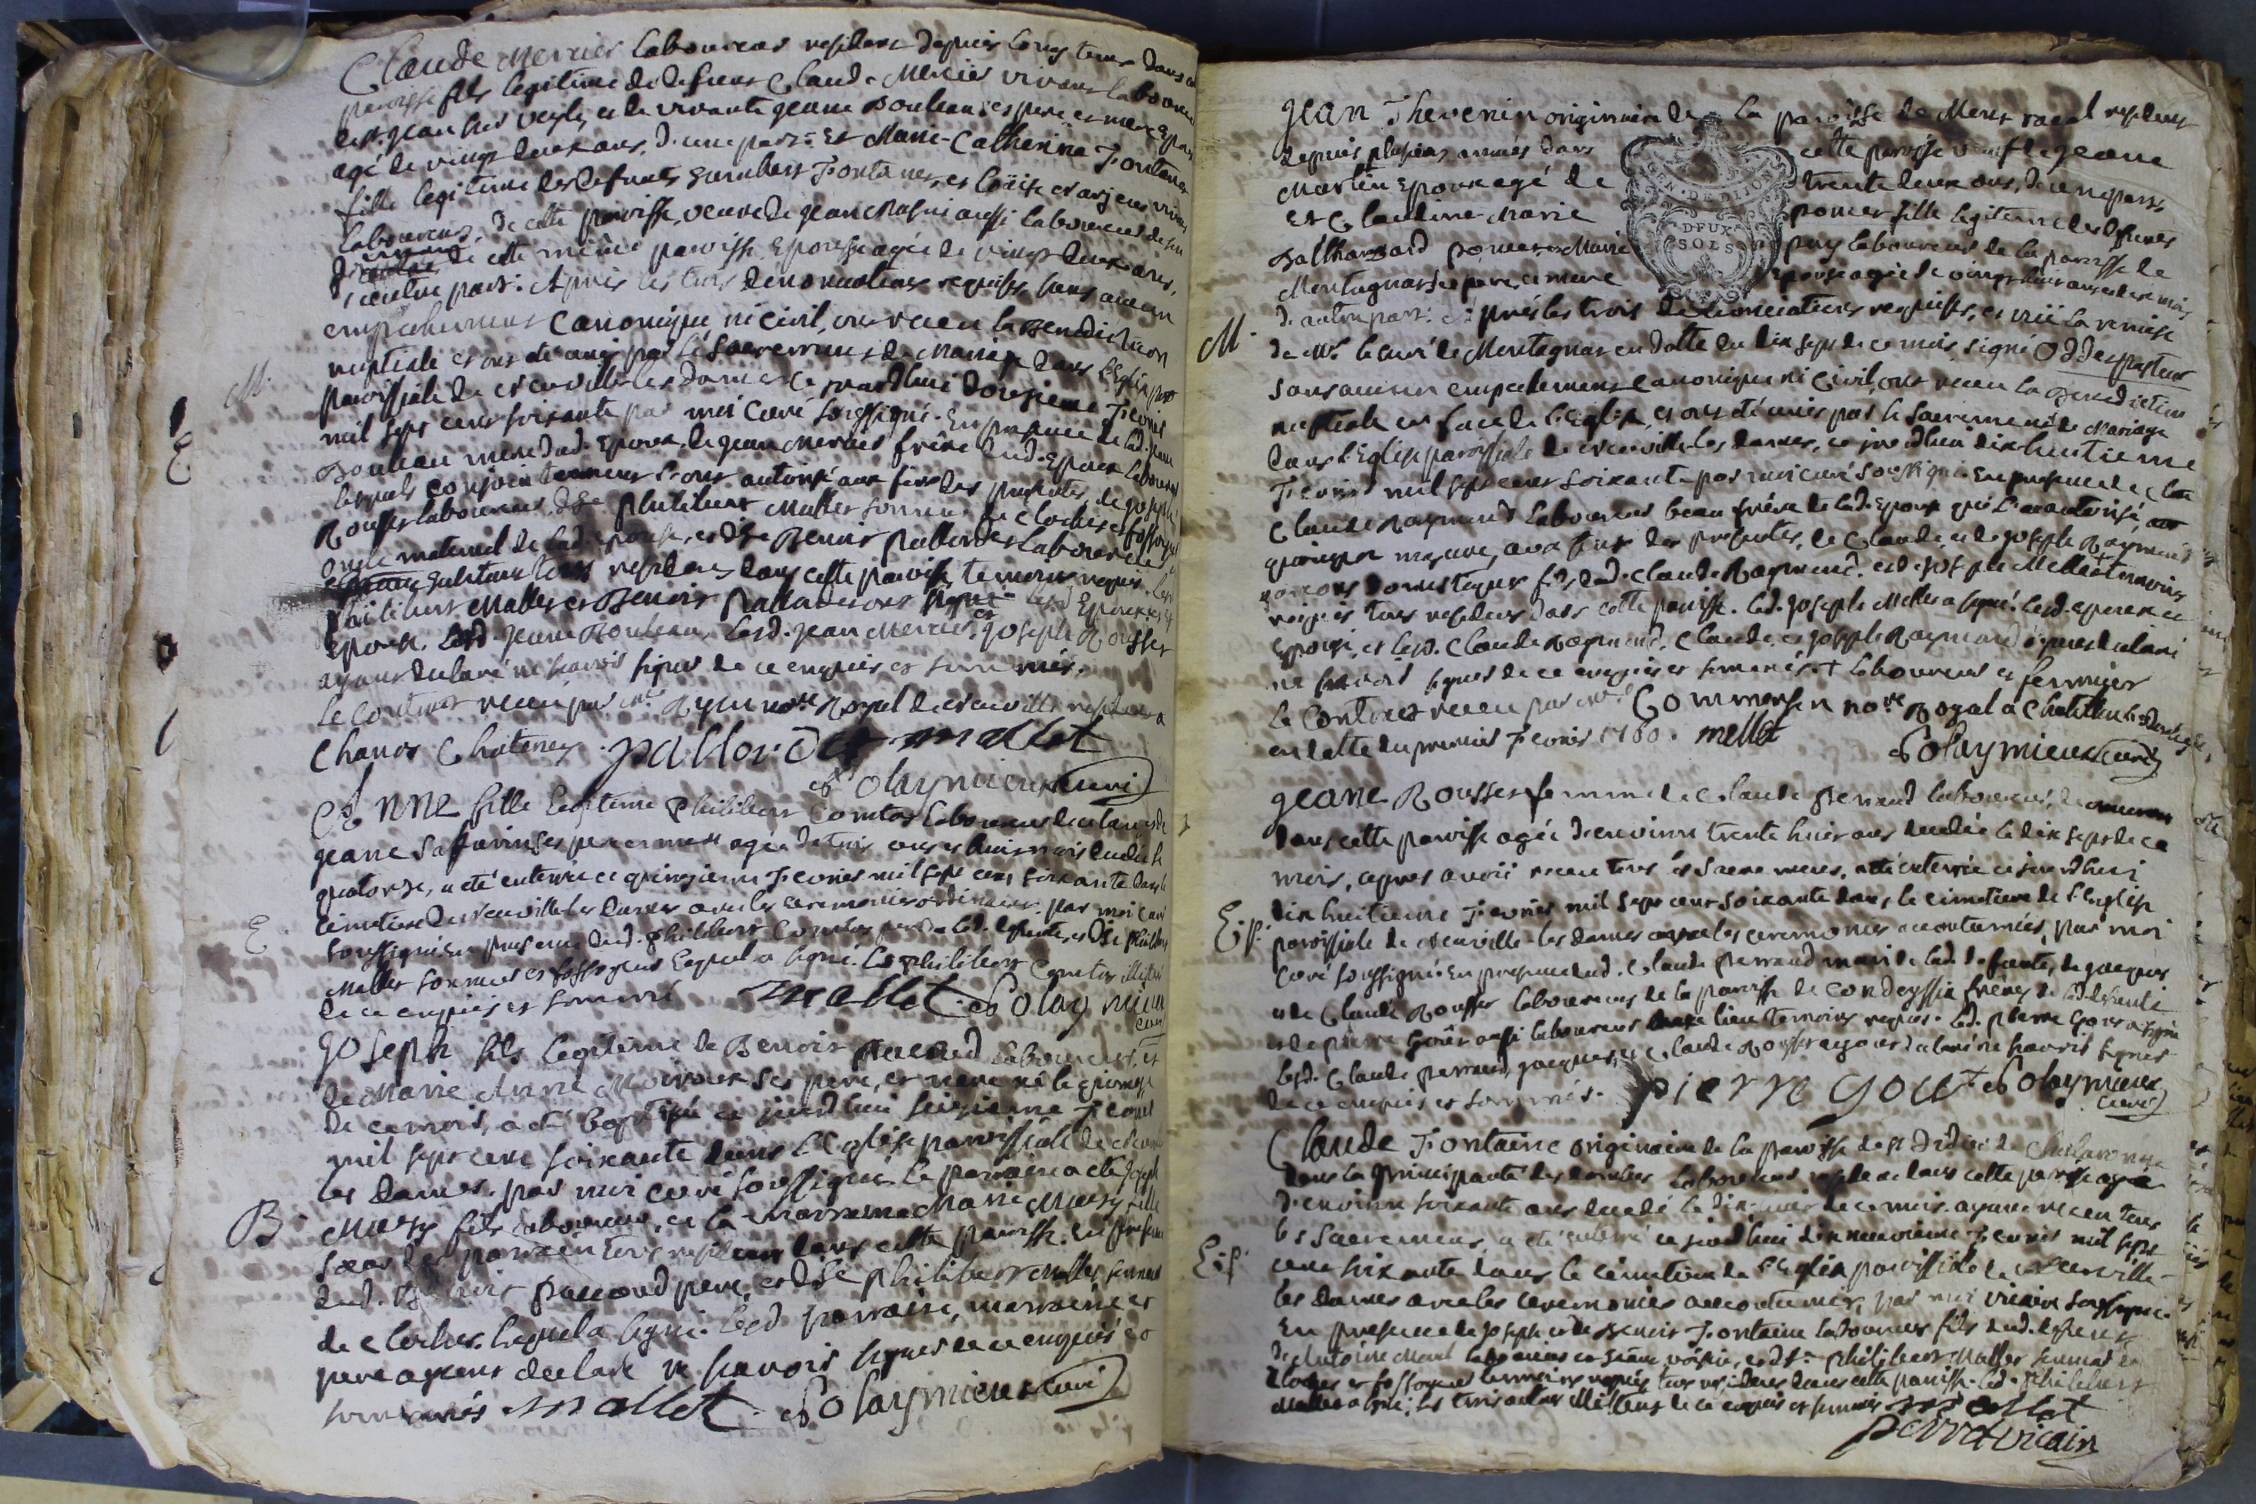 Claude Mercier laboureur resident depuis long tems dans ce
paroisse fils legitime de defunt Claude Mercier vivant laboureur
de St jean sur veyle, et de vivante jeanne Bouleau ses pere et mere Epoux
agé de vingt deux ans, d'une part: Et Marie-Catherine Fontanes
fille legitime des defunts humbert Fontanes, et
laboureur, de cette paroisse, veuve de jean aussi laboureur de son
vivant de cette même paroisse Epouse agée de vingt deux ans,
d'autre part: Après les trois denonciations requises, sans aucun
empechement canonique ni civil, ont receu la Benediction
nuptiale et ont été unis par le Sacrement de Mariage dans l'Eglise
paroissiale de neuville les dames ce jourd'hui douzieme Fevrier
mil sept cent soixante par moi Curé soussigné. En presence de lad. jeanne
Bouleau mere dud. Epoux, de jean Mercier frère dud. Epoux laboureur
lesquels conjointement l'ont autorisé aux fins des presentes, de joseph
Rousset laboureur, de Sr. philibert Mallet sonneur de cloches et fossoyeur
oncle maternel de lad. epouse, et de Sr Benoit pallordet laboureur
tous residens dans cette paroisse, temoins requis. Led
philibert Mallet et Benoit pallordet ont signé les Epoux et
epouse. Lad. jeanne Bouleau, lesd. jean Mercier, et joseph Rousset
ayant declaré ne savoir signer de ce enquis et sommés.
Le contract receu par me Ayme nore Royal de neuville resident a
Chanos Chatenay. pallordet mallet
Solaymieux curé
E
M.
Anne fille legitime philibert Comtet laboureur
jeane Saffarin ses pere et mere agée de trois ans et huit mois decedée le
quatorze, a été enterrée ce quinzieme Fevrier mil sept cent soixante dans le
cimetiere de neuville les dames avec les ceremonies ordinaires par moi curé
soussigné. En presence dud. philibert Comtet pere de lad. defunte, et de Sr philibert
Mallet sonneur et fossoyeur lequel a signé. Led philibert Comtet illitteré
de ce enquis et sommé mallet. Solaymieux
curé
E.
joseph fils legitime de Benoit pacoud laboureur, et
de Marie Anne ses pere, et mere né le quinze
de ce mois, a été baptisé ce jourd'hui seizieme Fevrier
mil sept cent soixante dans l'Eglise paroissiale de neuville
les dames, par moi curé soussigné. Le parrain a été joseph
fils laboureur, et la marraine Marie fille
soeur du parrain tous residens dans cette paroisse. En presence
dud. Benoit pacoud pere, et de Sr philibert Mallet sonneur
de cloches. lequel a signé. Lesd parrain, marraine et
pere ayant declaré ne savoir signer de ce enquis et
sommés mallet. Solaymieux curé
B
jean Thevenin originaire de la paroisse de Mont racol resident
depuis plusieurs années dans cette paroisse veuf de jeane
Martin Epoux agé de trente deux ans, d'une part,
et Claudine-Marie poncet fille legitime des defunts
Balthazard poncet et Marie laboureurs de la paroisse de
Montagnat ses pere, et mere Epouse agée de vingt huit ans et dix mois
d'autre part: Après les trois denonciations requises, et vüe la remise
de Mr. le curé de Montagnat en datte du dix sept de ce mois, signé Oddex pasteur
sans aucun empechement Canonique ni Civil, ont receu la Benediction
nuptiale en face de l'Eglise, et ont été unis par le Sacrement de Mariage
dans l'Eglise paroissiale de neuville les dames, ce jourd'hui dix huitieme
Fevrier mil sept cent soixante par moi curé soussigné. En presence de
Claude Raymond laboureur beau frère de lad. Epouse qui l'a autorisé,
quoique majeure, aux fins des presentes, de Claude, et de joseph Raymond
garcons domestiques fils dud. Claude Raymond. et de joseph Mellet + temoins
requis tous residens dans cette paroisse. Led. joseph Mellet a signé. Lesd. epoux et
epouse, et lesd. Claude Raymond, Claude et joseph Raymond ayant declaré
ne savoir signer de ce enquis et sommés. + laboureur et fermier
Le Contract receu par me. Commerson nore Royal a Chatillon les dombes,
en datte du premier Fevrier 1760. mellet Solaymieux curé
M.
jeane Rousset femme de Claude perraud laboureur, demeurant
dans cette paroisse agée d'environ trente huit ans decedée le dix sept de ce
mois, apres avoir receu tous les Sacremens, a été enterrée ce jourd'hui
dix huitieme Fevrier mil sept cent soixante dans le cimetiere de l'Eglise
paroissiale de neuville-les dames avec les ceremonies accoutumées, par moi
Curé soussigné. En presence dud. Claude perraud mari de lad. defunte, de jacques
et de Claude Rousset laboureurs de la paroisse de Condeyssia freres de lad. defunte
et de pierre Goüt aussi laboureur temoins requis. Led. pierre Gout a signé
lesd. Claude perraud, jacques, et Claude Rousset ayant declaré ne savoir signer
de ce enquis et sommés. pierre Gout Solaymieux
curé
E.p.
Claude Fontaine originaire de la paroisse de St Didier de Chalaronne
dans la principauté des dombes laboureur residant dans cette paroisse agé
d'environ soixante ans decedé le dix-huit de ce mois. ayant receu tous
les Sacremens, a été enterré ce jourd'hui dix neuvieme Fevrier mil sept
cent soixante dans le cimetiere de l'Eglise paroissiale de neuville-
les dames avec les ceremonies accoutumées, par moi vicaire soussigné.
En presence de joseph et de Benoit Fontaine laboureurs fils dud. defunt
d'Antoine Morel laboureur et de Sr. philibert Mallet sonneur de
cloches et fossoyeur temoins requis tous residens dans cette paroisse. led. philibert
Mallet a signé; les trois autres illitterés de ce enquis et sommés mallet
perret vicaire
E.p.
GEN. DE DIJON
DEUX
SOLS